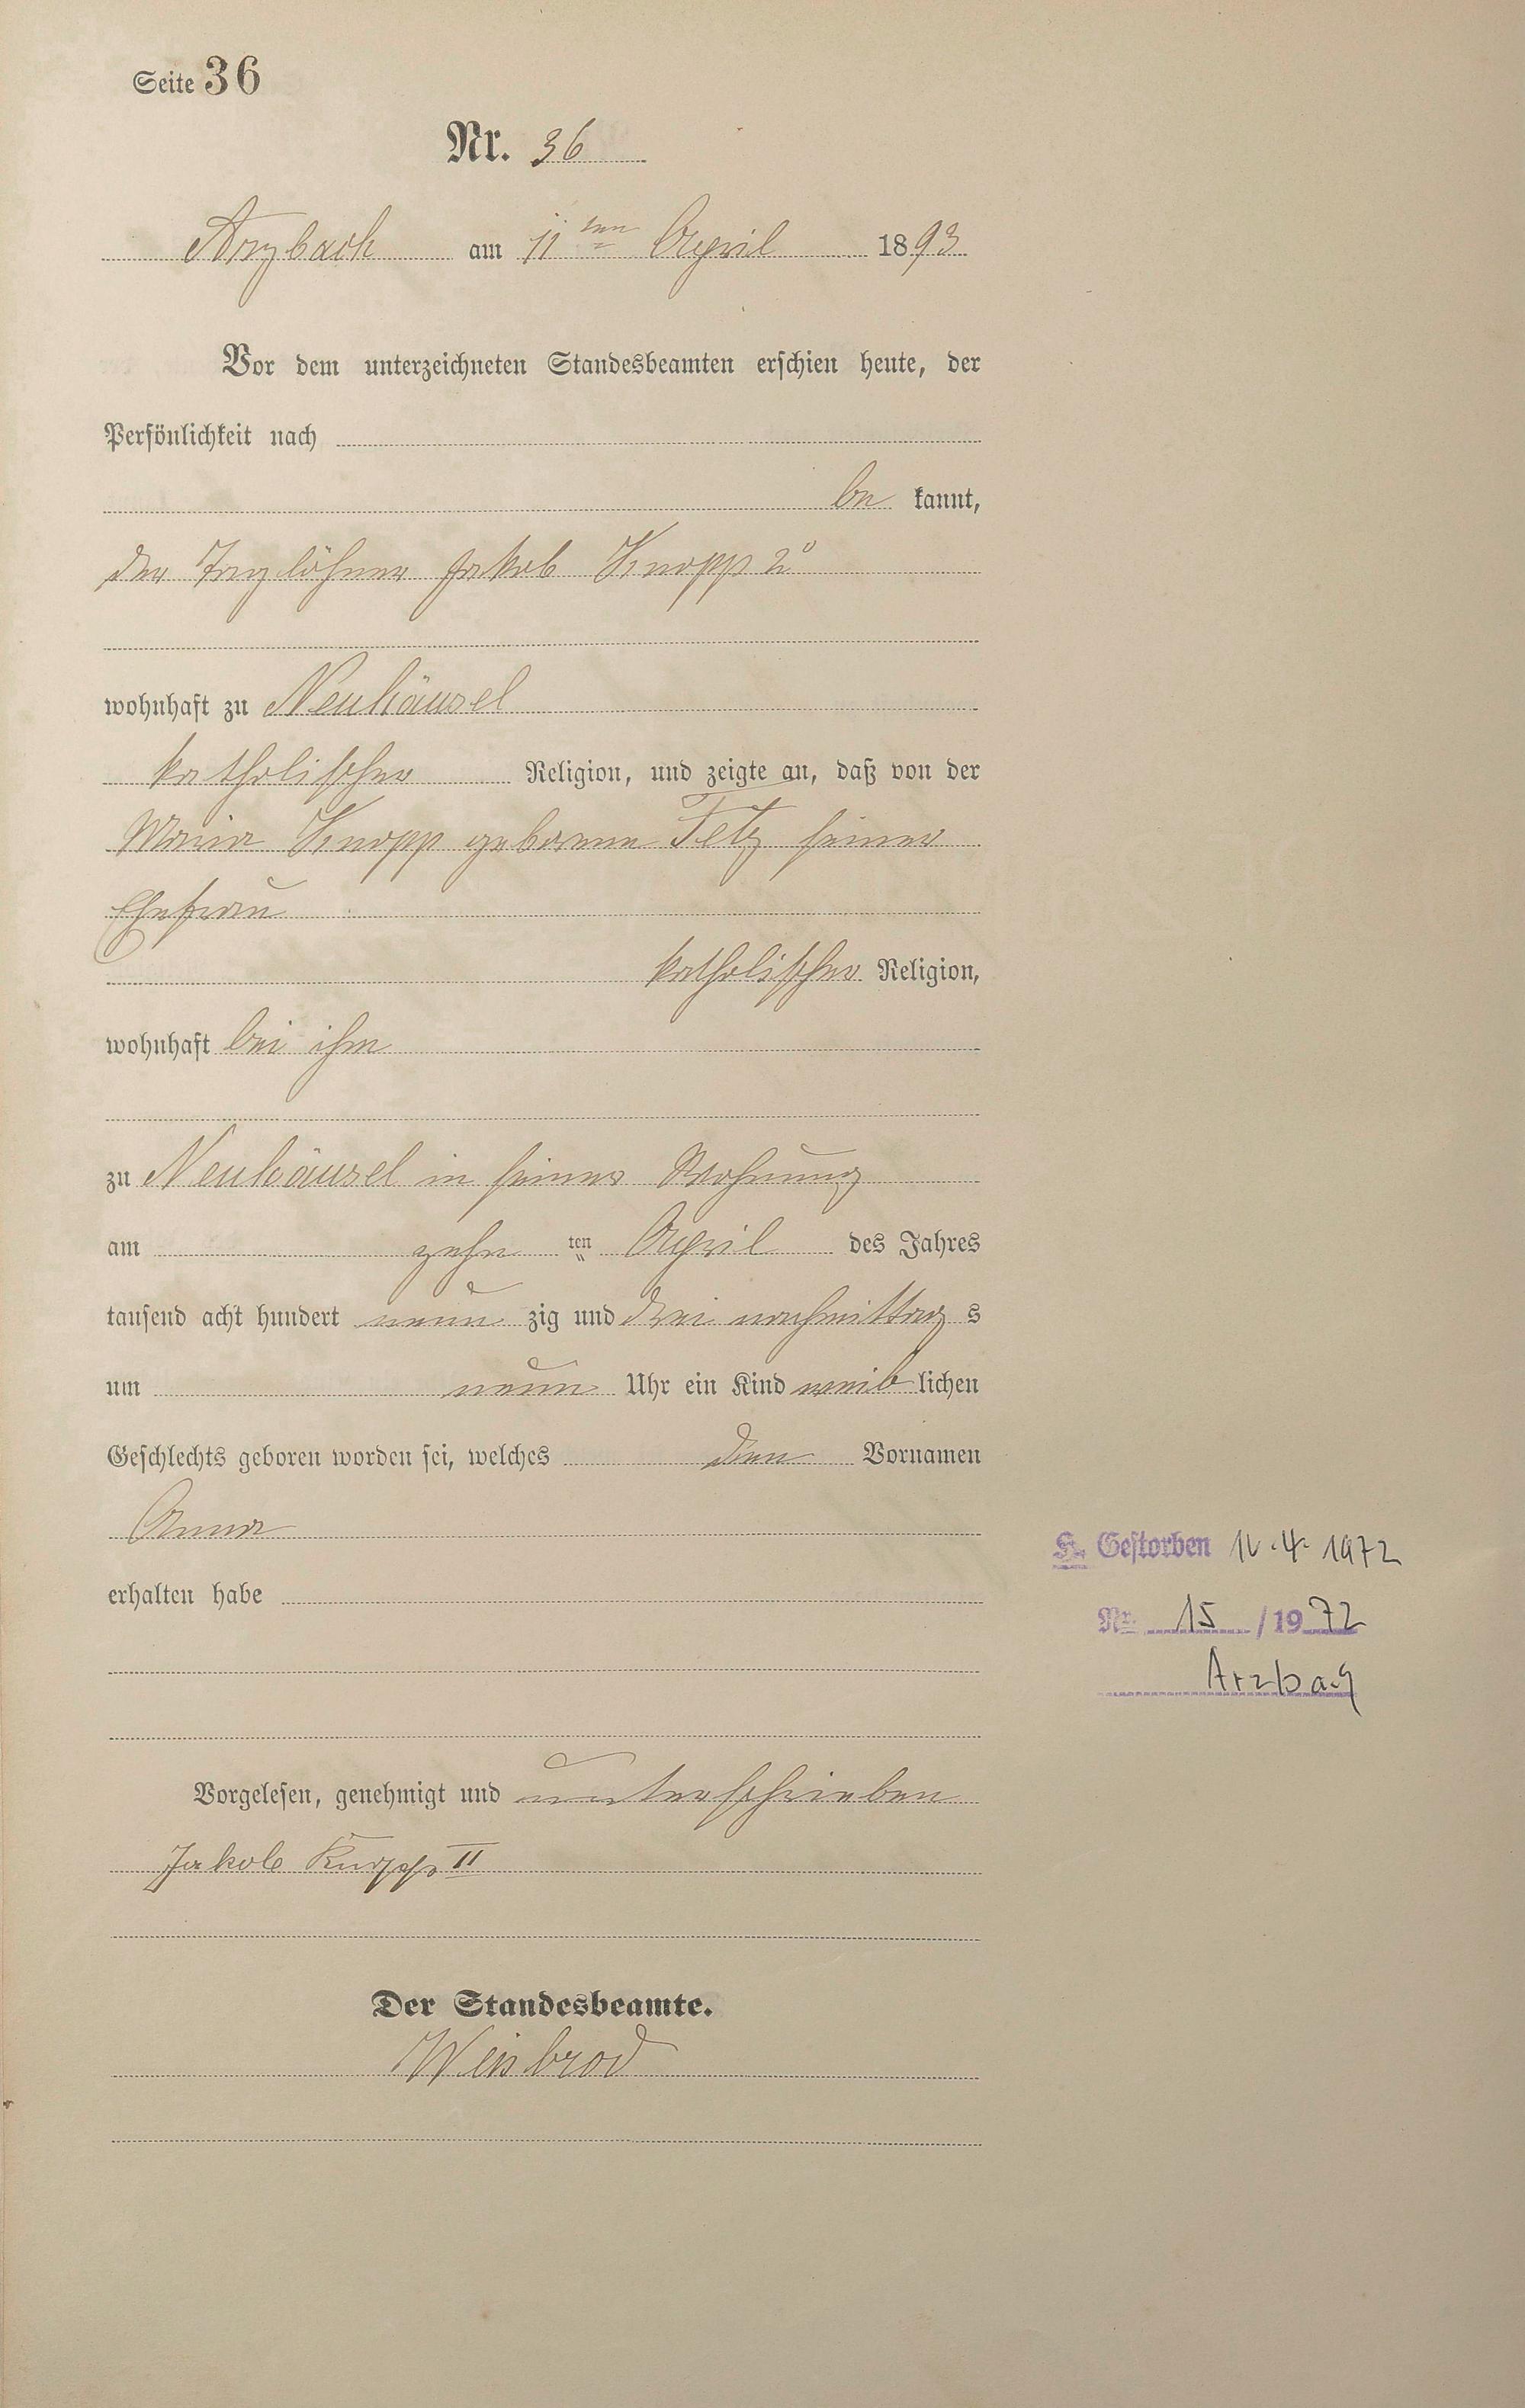 Seite 36
Nr. 36
Arzbach am 11ten April 1893
Vor dem unterzeichneten Standesbeamten erschien heute, der
Persönlichkeit nach
be kannt,
der Taglöhner Jakob Knopp 2º
wohnhaft zu Neuhäusel
katholischer Religion, und zeigte an, daß von der
Maria Knopp geborene Fetz seiner
Ehefrau
katholischer Religion,
wohnhaft bei ihm
zu Neuhäusel in seiner Wohnung
am zehn ten April des Jahres
tausend acht hundert neun zig und drei nachmittag s
um neun Uhr ein Kind weib lichen
Geschlechts geboren worden sei, welches den Vornamen
Anna
erhalten habe
K. Gestorben 4. 1972
Nr. 15 / 1972
Arzbach
Vorgelesen, genehmigt und unterschrieben
Jakob Knopp II
Der Standesbeamte.
Weisbrod